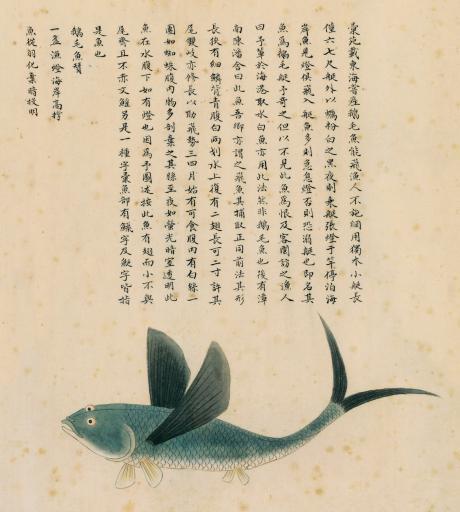 彙苑載東海嘗產鵝毛魚能飛漁人不施網用獨木小艇長
僅六七尺艇外以蠣粉白之黑夜則乘艇張燈于竿停泊海
岸魚見燈俱飛入艇魚多則急息燈否則恐溺艇也即名其
魚為鵝毛艇予奇之但以不見此魚為恨及客閩訪之漁人
曰予輩於海港取水白魚亦用此法然非鵝毛魚也後有漳
南陳潘舍曰此魚吾鄉亦謂之飛魚其捕取正同前法其形
長狹有細鱗背青腹白兩划水上復有二翅長可二寸許其
尾雙岐亦修長以助飛勢三四月始有可食腹內有白絲一
團如蜘蛛腹內物多剖棄之其絲至夜如螢光暗室透明此
魚在水腹下如有燈也因為予圖述按此魚有翅而小不與
尾齊且不赤文鰩另是一種字彙魚部有字及字皆指
是魚也
鵝毛魚贊
一盞漁燈海岸高撑
魚從羽化棄暗投明